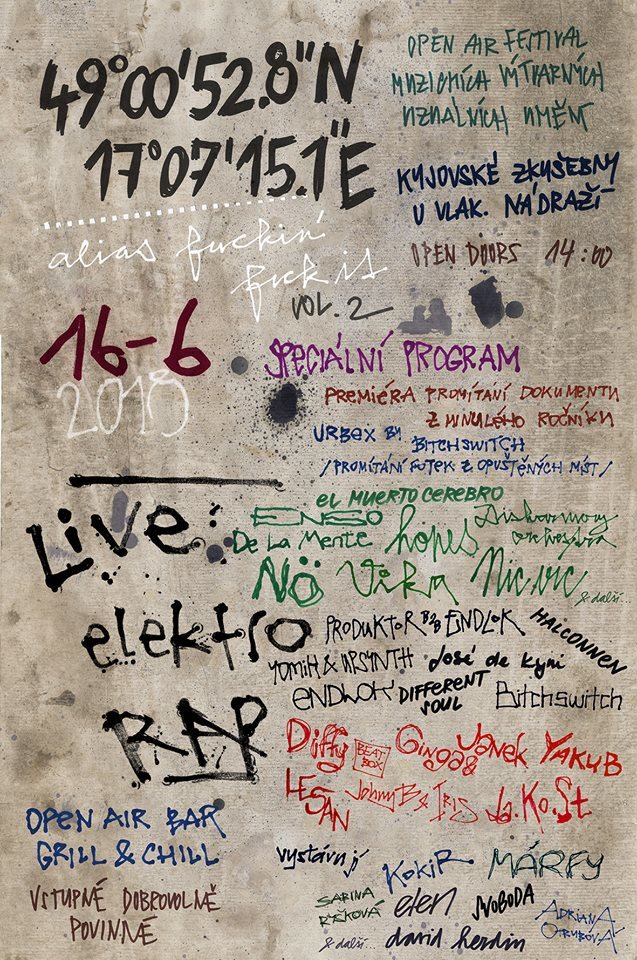 49°00'52.8"N
17°07'15.1"E
OPEN AIR FESTIVAL
MUZICKÍCH VÍTVARNÍCH
VIZUALNÍCH UMĚNÍ
KYJOVSKÉ ZKUŠEBNY
U VLAK. NÁDRAŽÍ
OPEN DOORS 14:00
alias fuckin'
fuck is
VOL. 2
16-6
2018
SPECIÁLNÍ PROGRAM
PREMIÉRA PROMÍTÁNÍ DOKUMENTU
Z MINULÉHO ROČNÍKU
URBEX BY BITCHSWITCH
/PROMÍTÁNÍ FOTEK Z OPUŠTĚNÝCH MÍST/
Live:
EL MUERTO CEREBRO
ENSO
De La Mente
hopes
Disharmony
orchestra
NÖ Vika Nic.vic
& další...
elektro
PRODUKTOR B2B ENDLOK
HALCONNEN
YOMIH & APSYNTH José de Kyni
ENDLOK DIFFERENT
SOUL
Bitchswitch
RAP
Diffy BEAT
BOX
Ginga &
Janek YAKUB
LESAN JohnyB & IRIS Ja.Ko.St
OPEN AIR BAR
GRILL & CHILL
VSTUPNÉ DOBROVOLNĚ
POVINNÉ
vystavují
KOKIR MÁRFY
SABINA
elen SVOBODA
ADRIANA
OTRUBOVÁ
& další... david